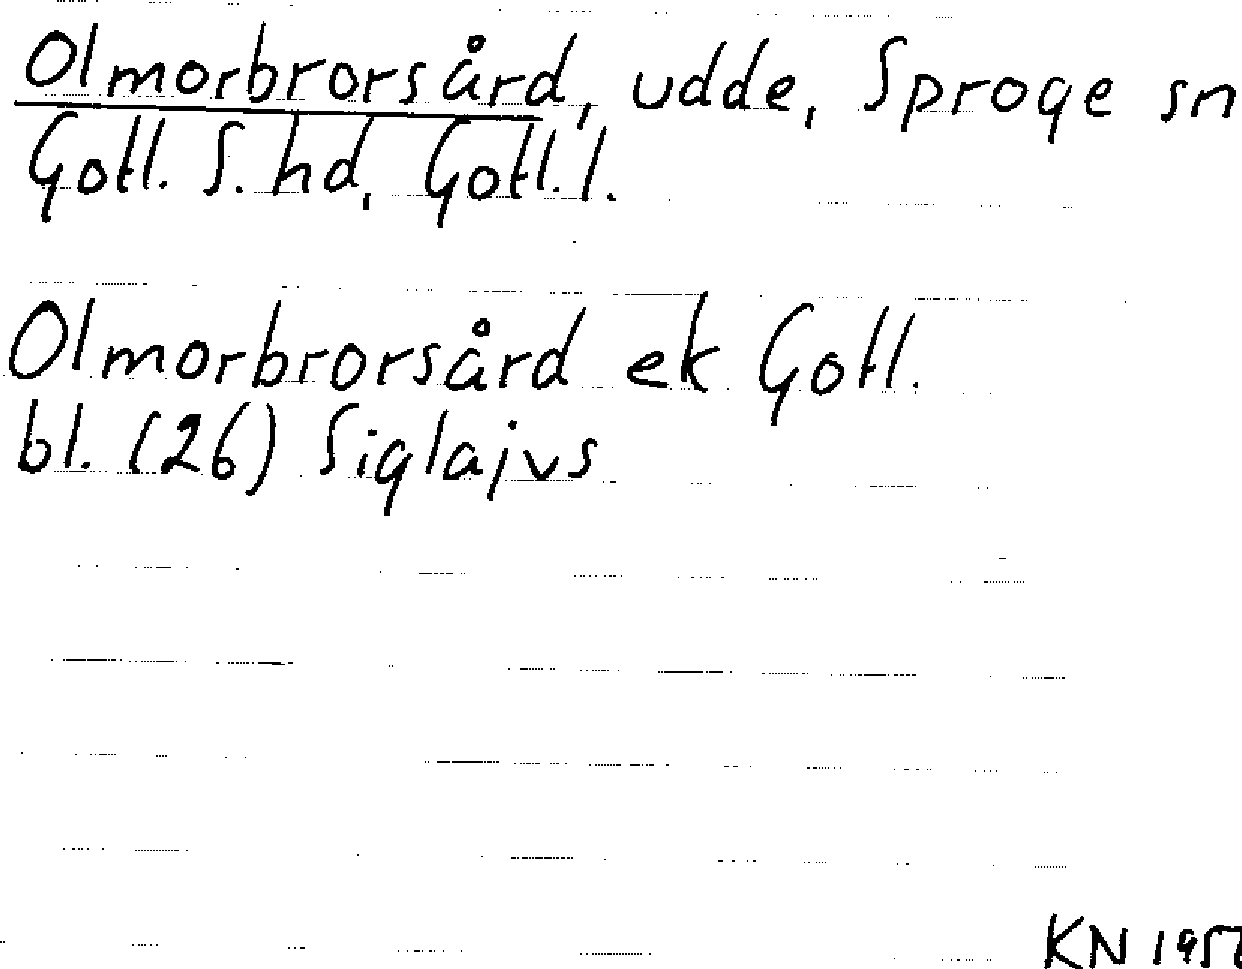 Olmorbrorsård, udde, Sproge sn
Gotl. S. hd, Gotl. l.
Olmorbrorsård ek Gotl.
bl. (26) Siglajvs
KN